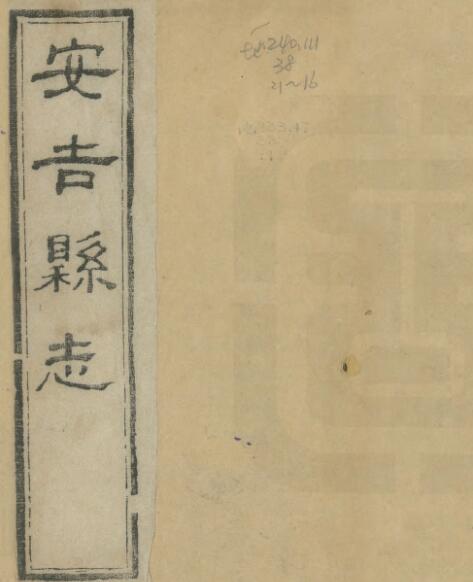 安吉縣志
240.111
38
21~16